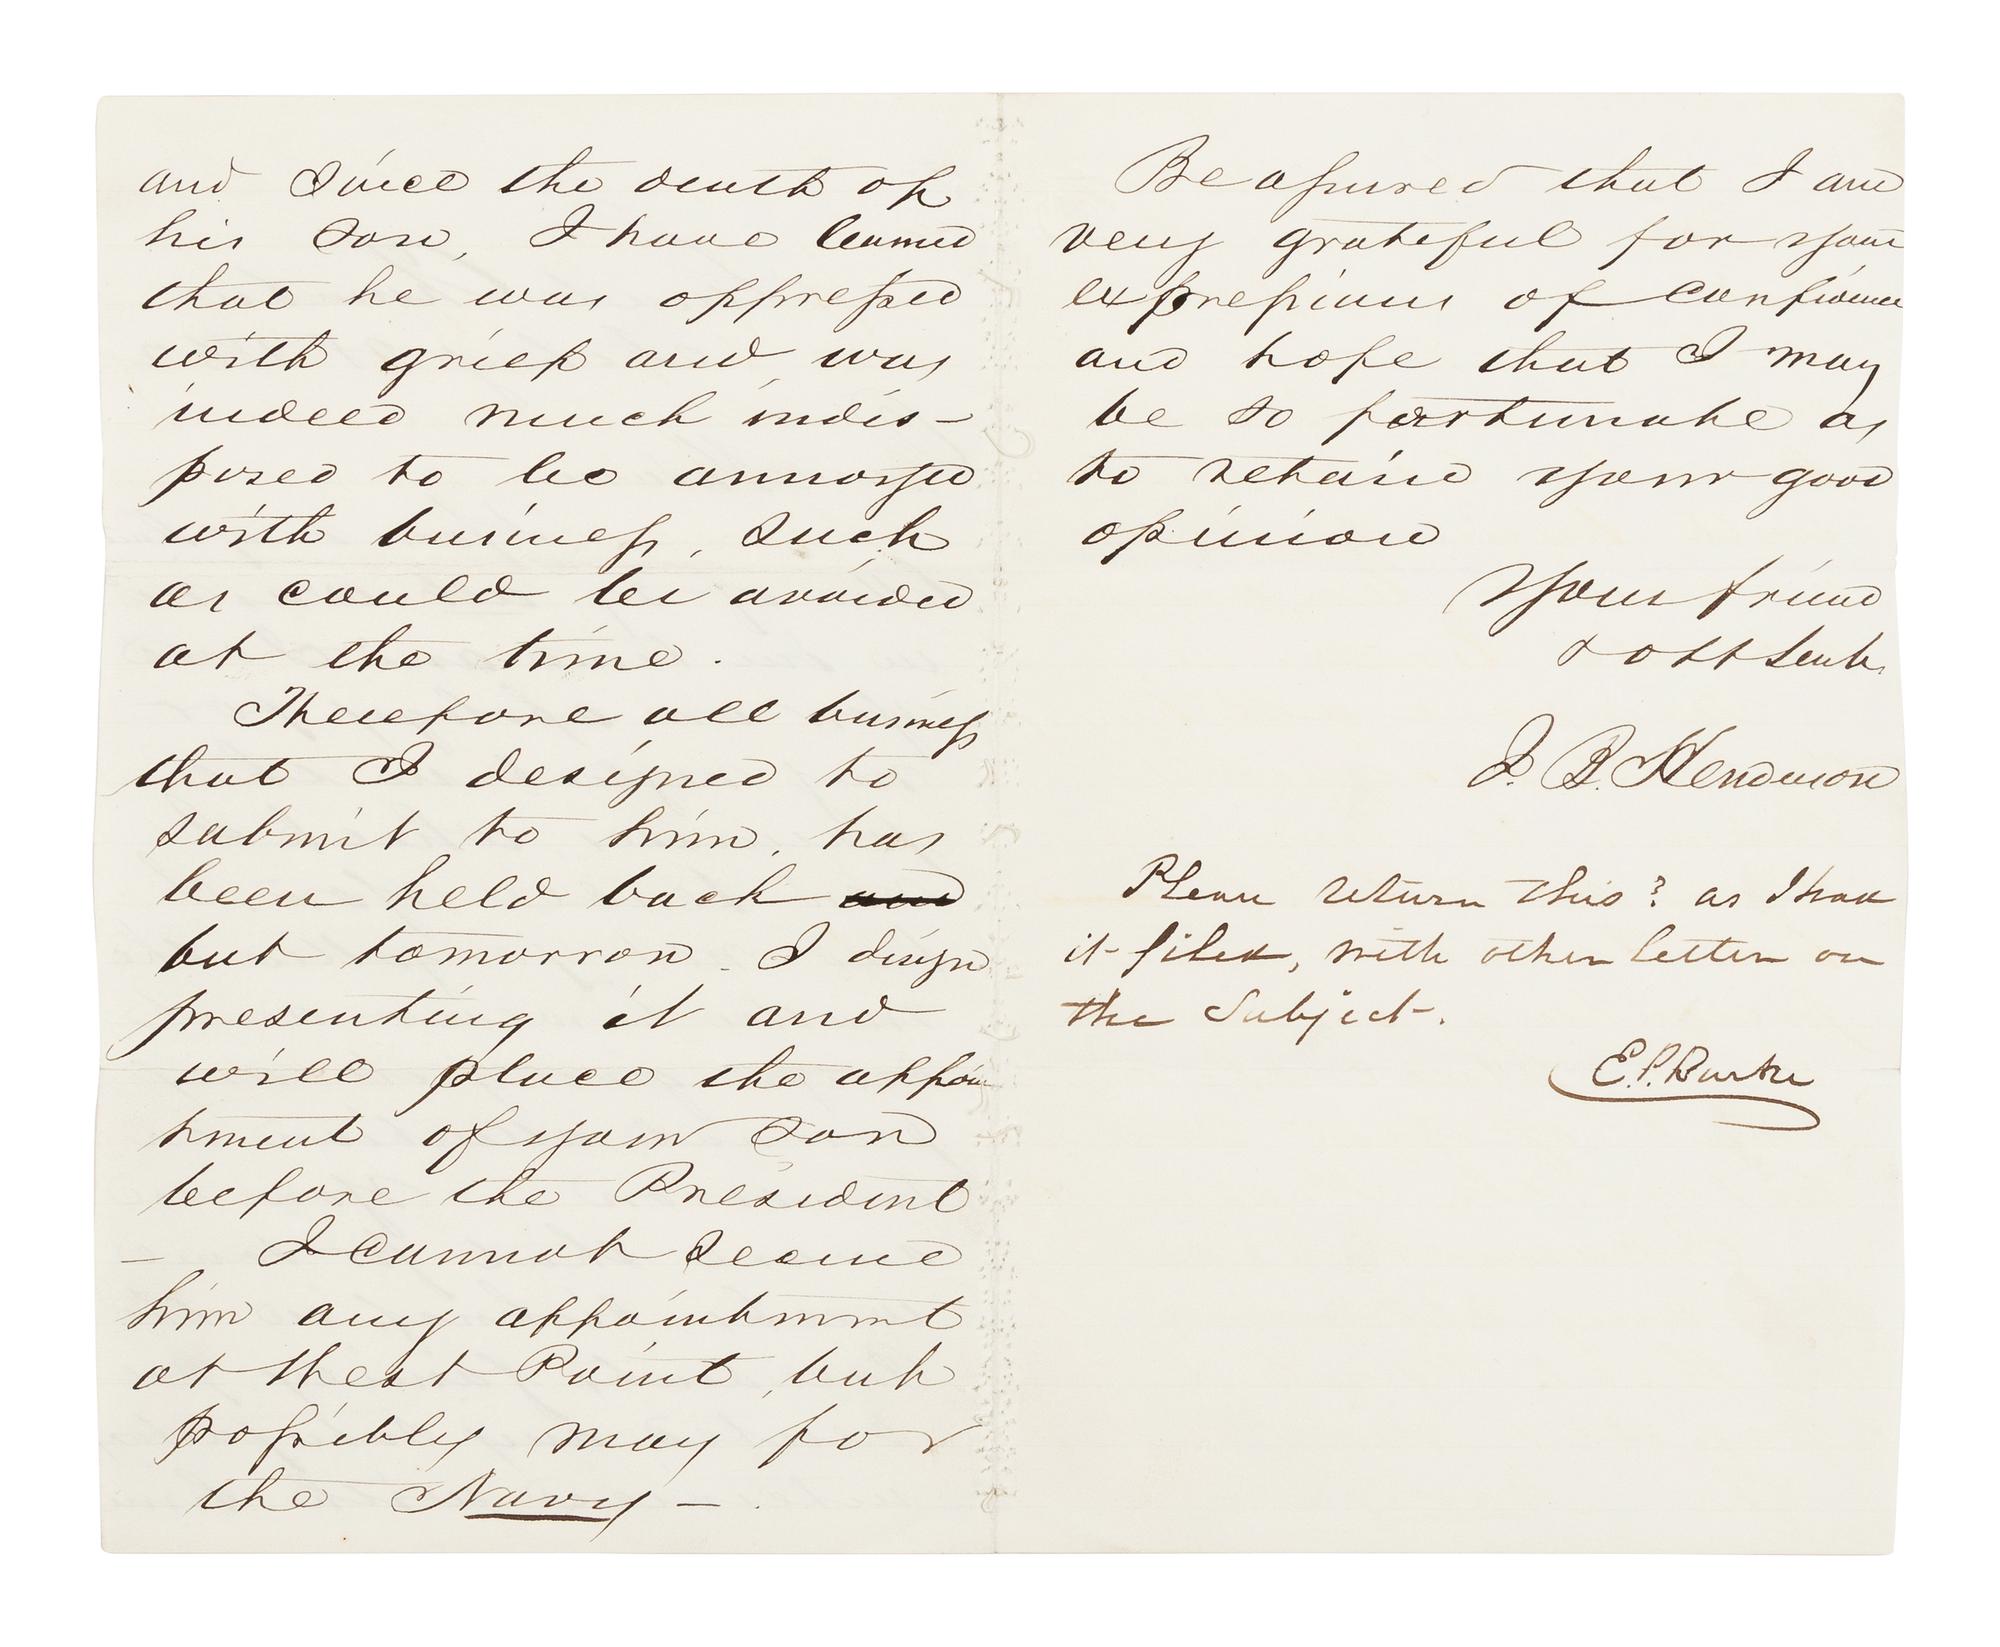 and since the death of
his son, I have learned
that he was oppressed
with grief and was
indeed much indis-
posed to be annoyed
with business, such
as could be avoided
at the time.
Therefore all business
that I designed to
submit to him, has
been held back and
but tomorrow I design
presenting it and
will place the appoin
tment of your son
before the President
– I cannot secure
him any appointment
at West Point, but
possibly may for
the Navy –.
Be assured that I am
very grateful for your
expressions of confidence
and hope that I may
be so fortunate as
to retain your good
opinion
Your friend
& obt servt
J. B. Henderson
Please return this? as I have
it filed, with other letters on
the Subject.
E. P. Burke